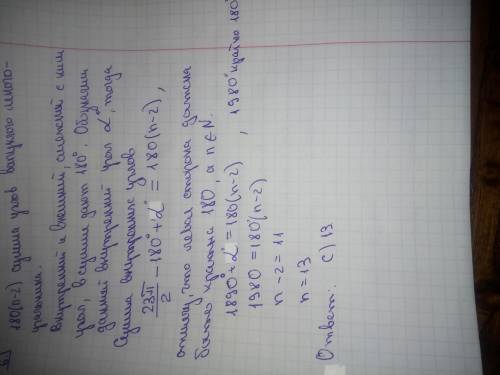 180(n-2) сумма углов выпуклого много-
угольника.
Внутренний и внешний, смежный с ним
угол, в сумме дают 180°. Обозначим
данный внутренний угол α°, тогда
Сумма внутренних углов
23π/2 - 180° + α° = 180(n-2),
отмечу, что левая сторона должна
быть кратна 180, а n∈N.
1890° + α° = 180(n-2) , 1980° кратно 180°
1980 = 180°(n-2)
n-2 = 11
n = 13
Ответ: C) 13